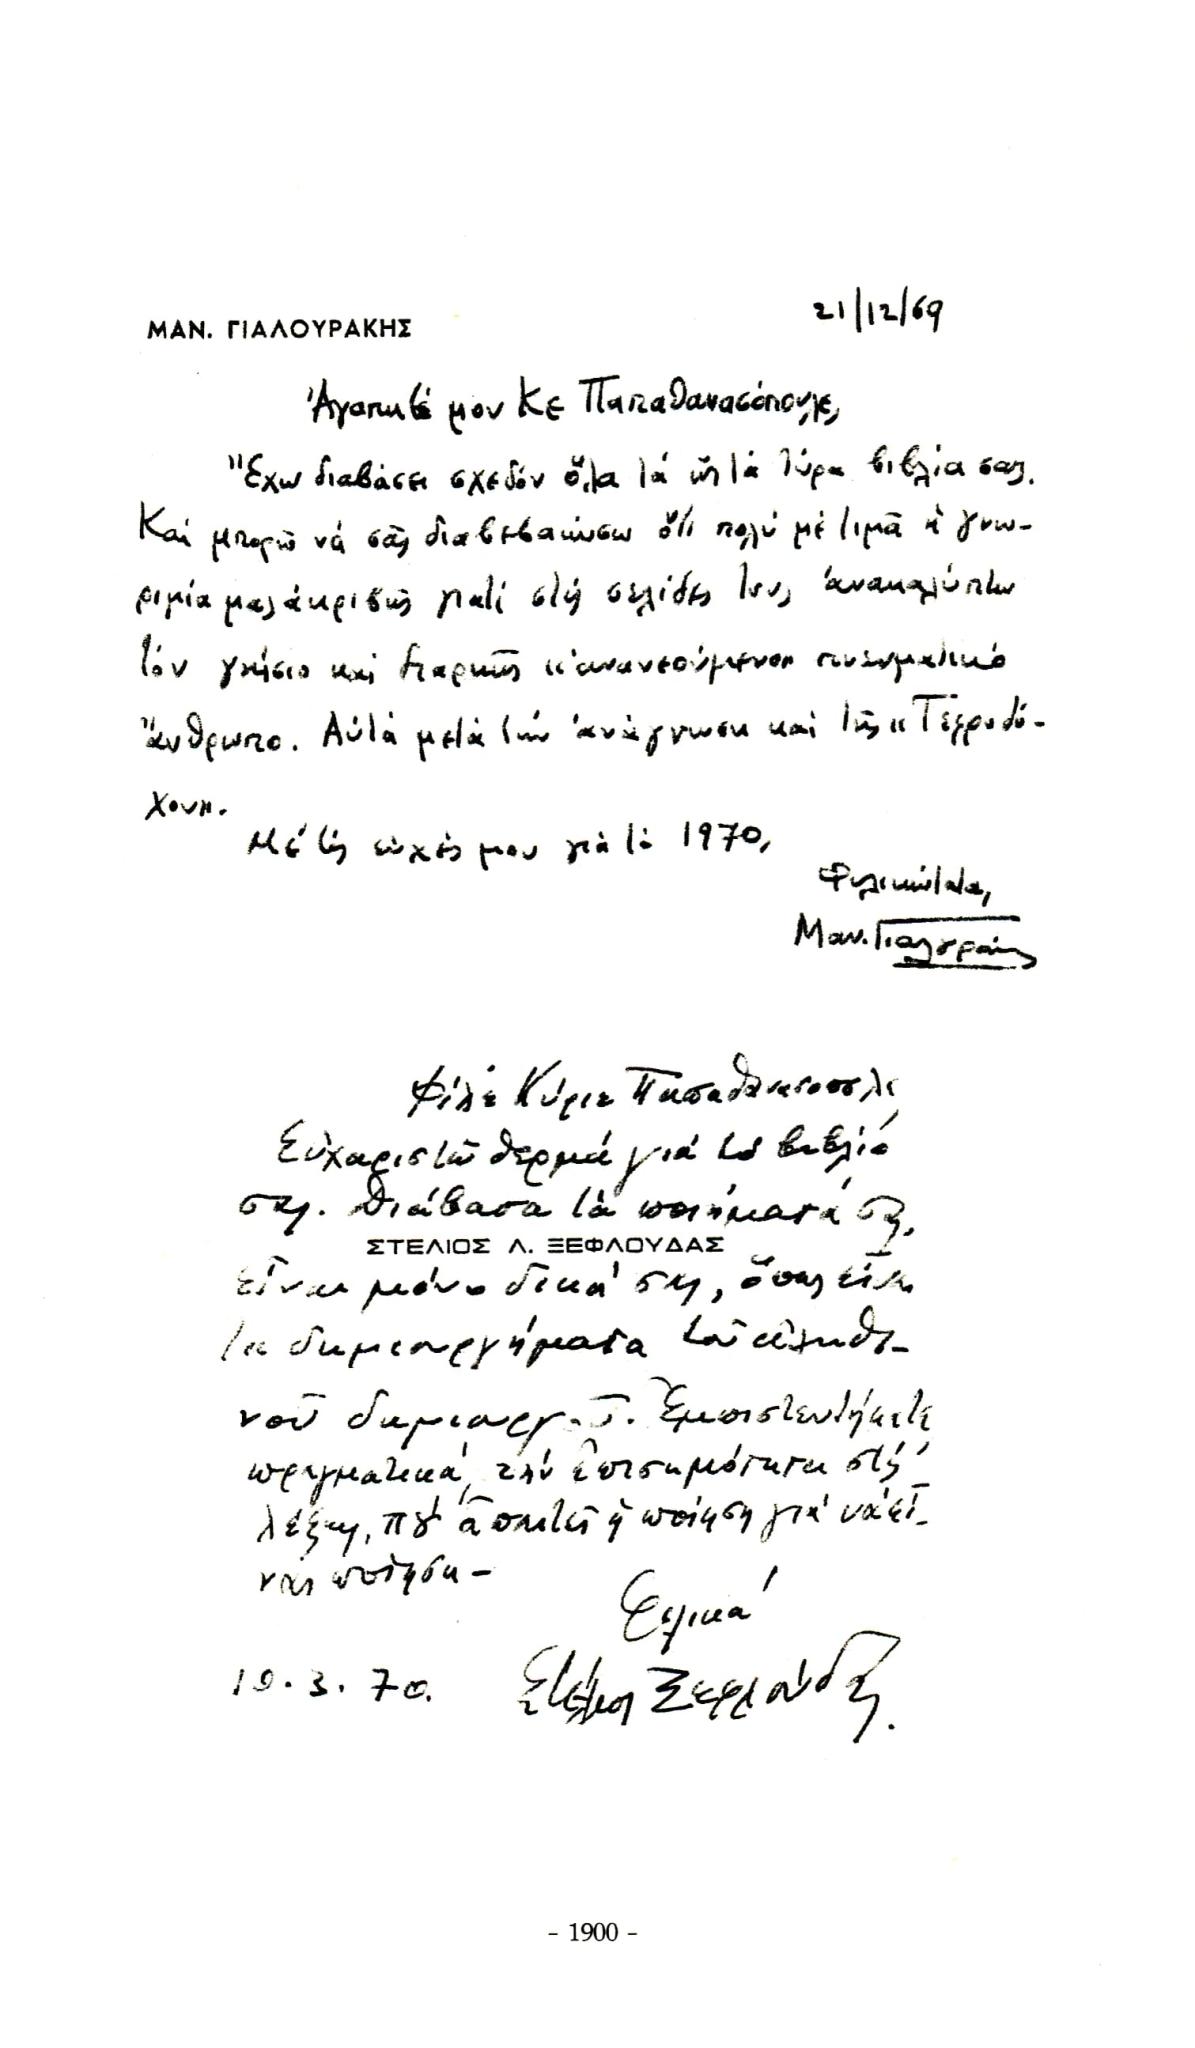 ΜΑΝ. ΓΙΑΛΟΥΡΑΚΗΣ
21/12/69
Ἀγαπητέ μου Κε Παπαθανασόπουλε,
Ἔχω διαβάσει σχεδόν ὅλα τά ὥς τά τώρα βιβλία σας.
Καί μπορῶ νά σᾶς διαβεβαιώσω ὅτι πολύ μέ τιμᾶ ἡ γνω-
ριμία μας ἀκριβῶς γιατί στίς σελίδες τους ἀνακαλύπτω
τόν γνήσιο καί διαρκῶς "ἀνανεούμενο" πνευματικό
ἄνθρωπο. Αὐτά μετά τήν ἀνάγνωση καί τῆς "Τεφροδό-
χου".
Μέ τίς εὐχές μου γιά τό 1970,
Φιλικώτατα,
Μαν. Γιαλουράκης
Φίλε Κύριε Παπαθανασόπουλε
Εὐχαριστῶ θερμά γιά τό βιβλίο
σας. Διάβασα τά ποιήματά σας,
ΣΤΕΛΙΟΣ Λ. ΞΕΦΛΟΥΔΑΣ
εἶναι μόνο δικά σας, ὅπως εἶναι
τά δημιουργήματα τοῦ ἀληθι-
νοῦ δημιουργοῦ. Ἐμπιστευτήκατε
πραγματικά, τήν ἐπισημότητα στίς
λέξεις, πού ἀπαιτεῖ ἡ ποίηση γιά νά εἶ-
ναι ποίηση -
Φιλικά
19.3.70.
Στέλιος Ξεφλούδας.
- 1900 -